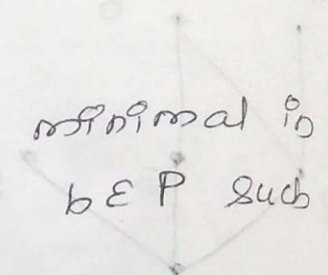 minimal in
b ε P such